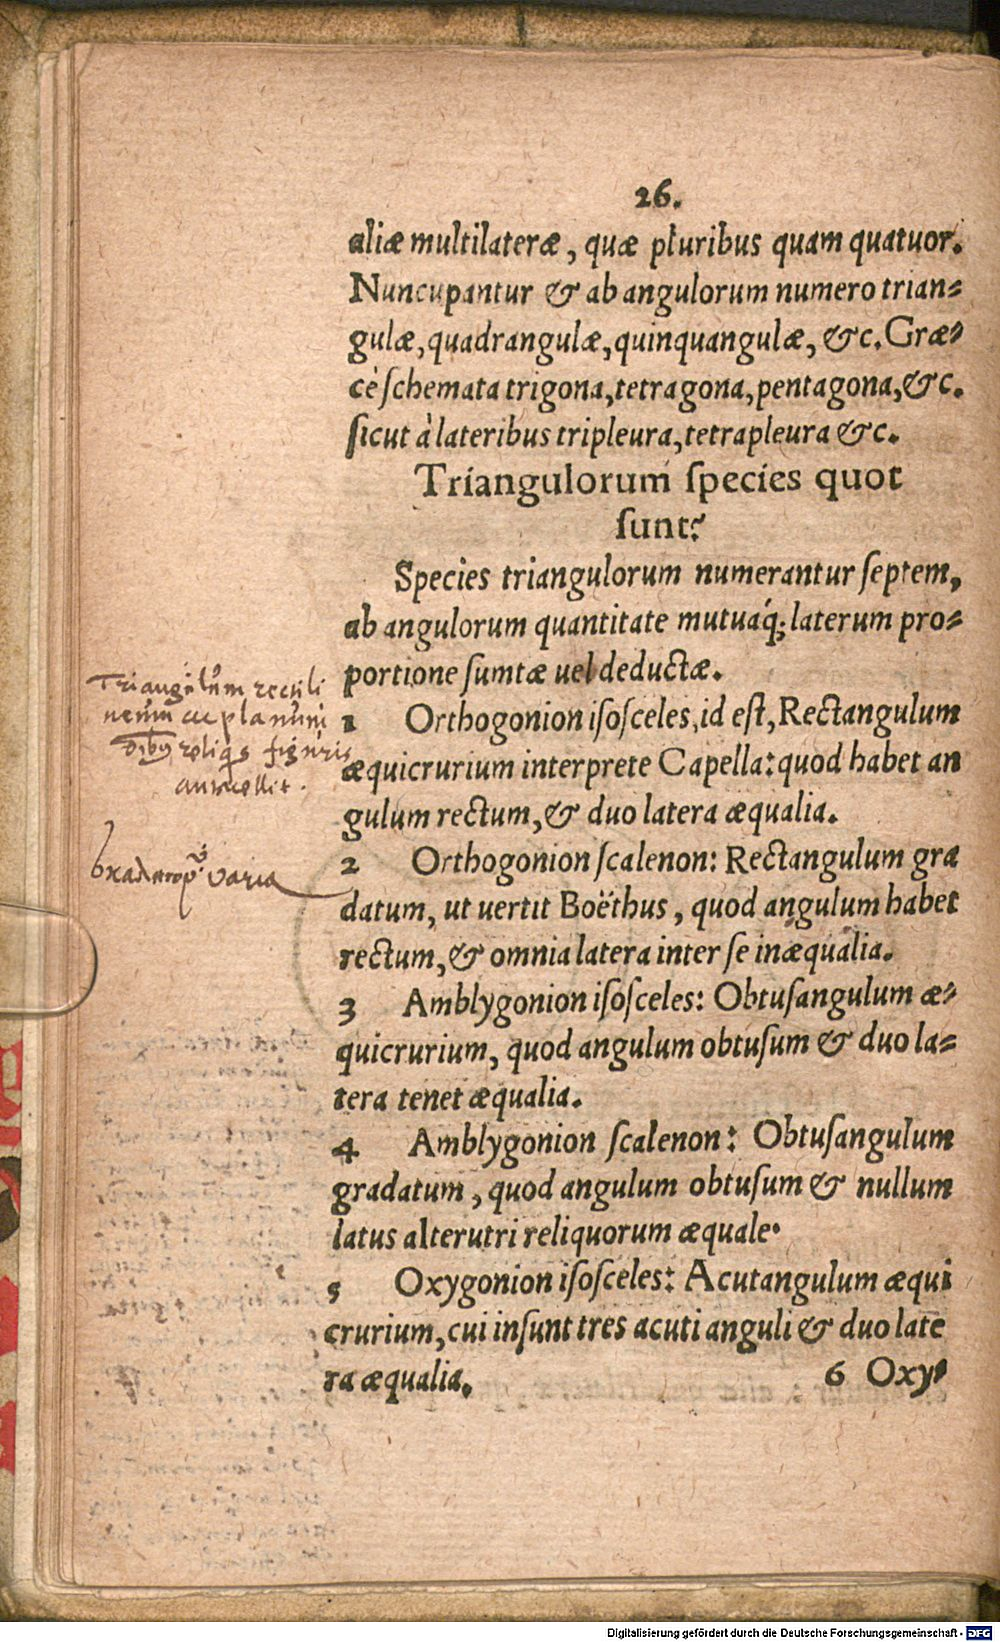 26.
aliæ multilateræ, quæ pluribus quam quatuor.
Nuncupantur & ab angulorum numero trian-
gulæ, quadrangulæ, quinquangulæ, &c. Græ-
cè ſchemata trigona, tetragona, pentagona, &c.
ſicut à lateribus tripleura, tetrapleura &c.
Triangulorum ſpecies quot
ſunt?
Species triangulorum numerantur ſeptem,
ab angulorum quantitate mutuáq; laterum pro-
portione ſumtæ uel deductæ.
Triangulum rectili
neum planum
figuris
1 Orthogonion iſoſceles, id eſt, Rectangulum
æquicrurium interprete Capella: quod habet an
gulum rectum, & duo latera æqualia.
varia
2 Orthogonion ſcalenon: Rectangulum gra
datum, ut uertit Boëthus, quod angulum habet
rectum, & omnia latera inter ſe inæqualia.
3 Amblygonion iſoſceles: Obtuſangulum æ-
quicrurium, quod angulum obtuſum & duo la-
tera tenet æqualia.
4 Amblygonion ſcalenon: Obtuſangulum
gradatum, quod angulum obtuſum & nullum
latus alterutri reliquorum æquale.
5 Oxygonion iſoſceles: Acutangulum æqui
crurium, cui inſunt tres acuti anguli & duo late
ra æqualia. 6 Oxy-
Digitalisierung gefördert durch die Deutsche Forschungsgemeinschaft - DFG